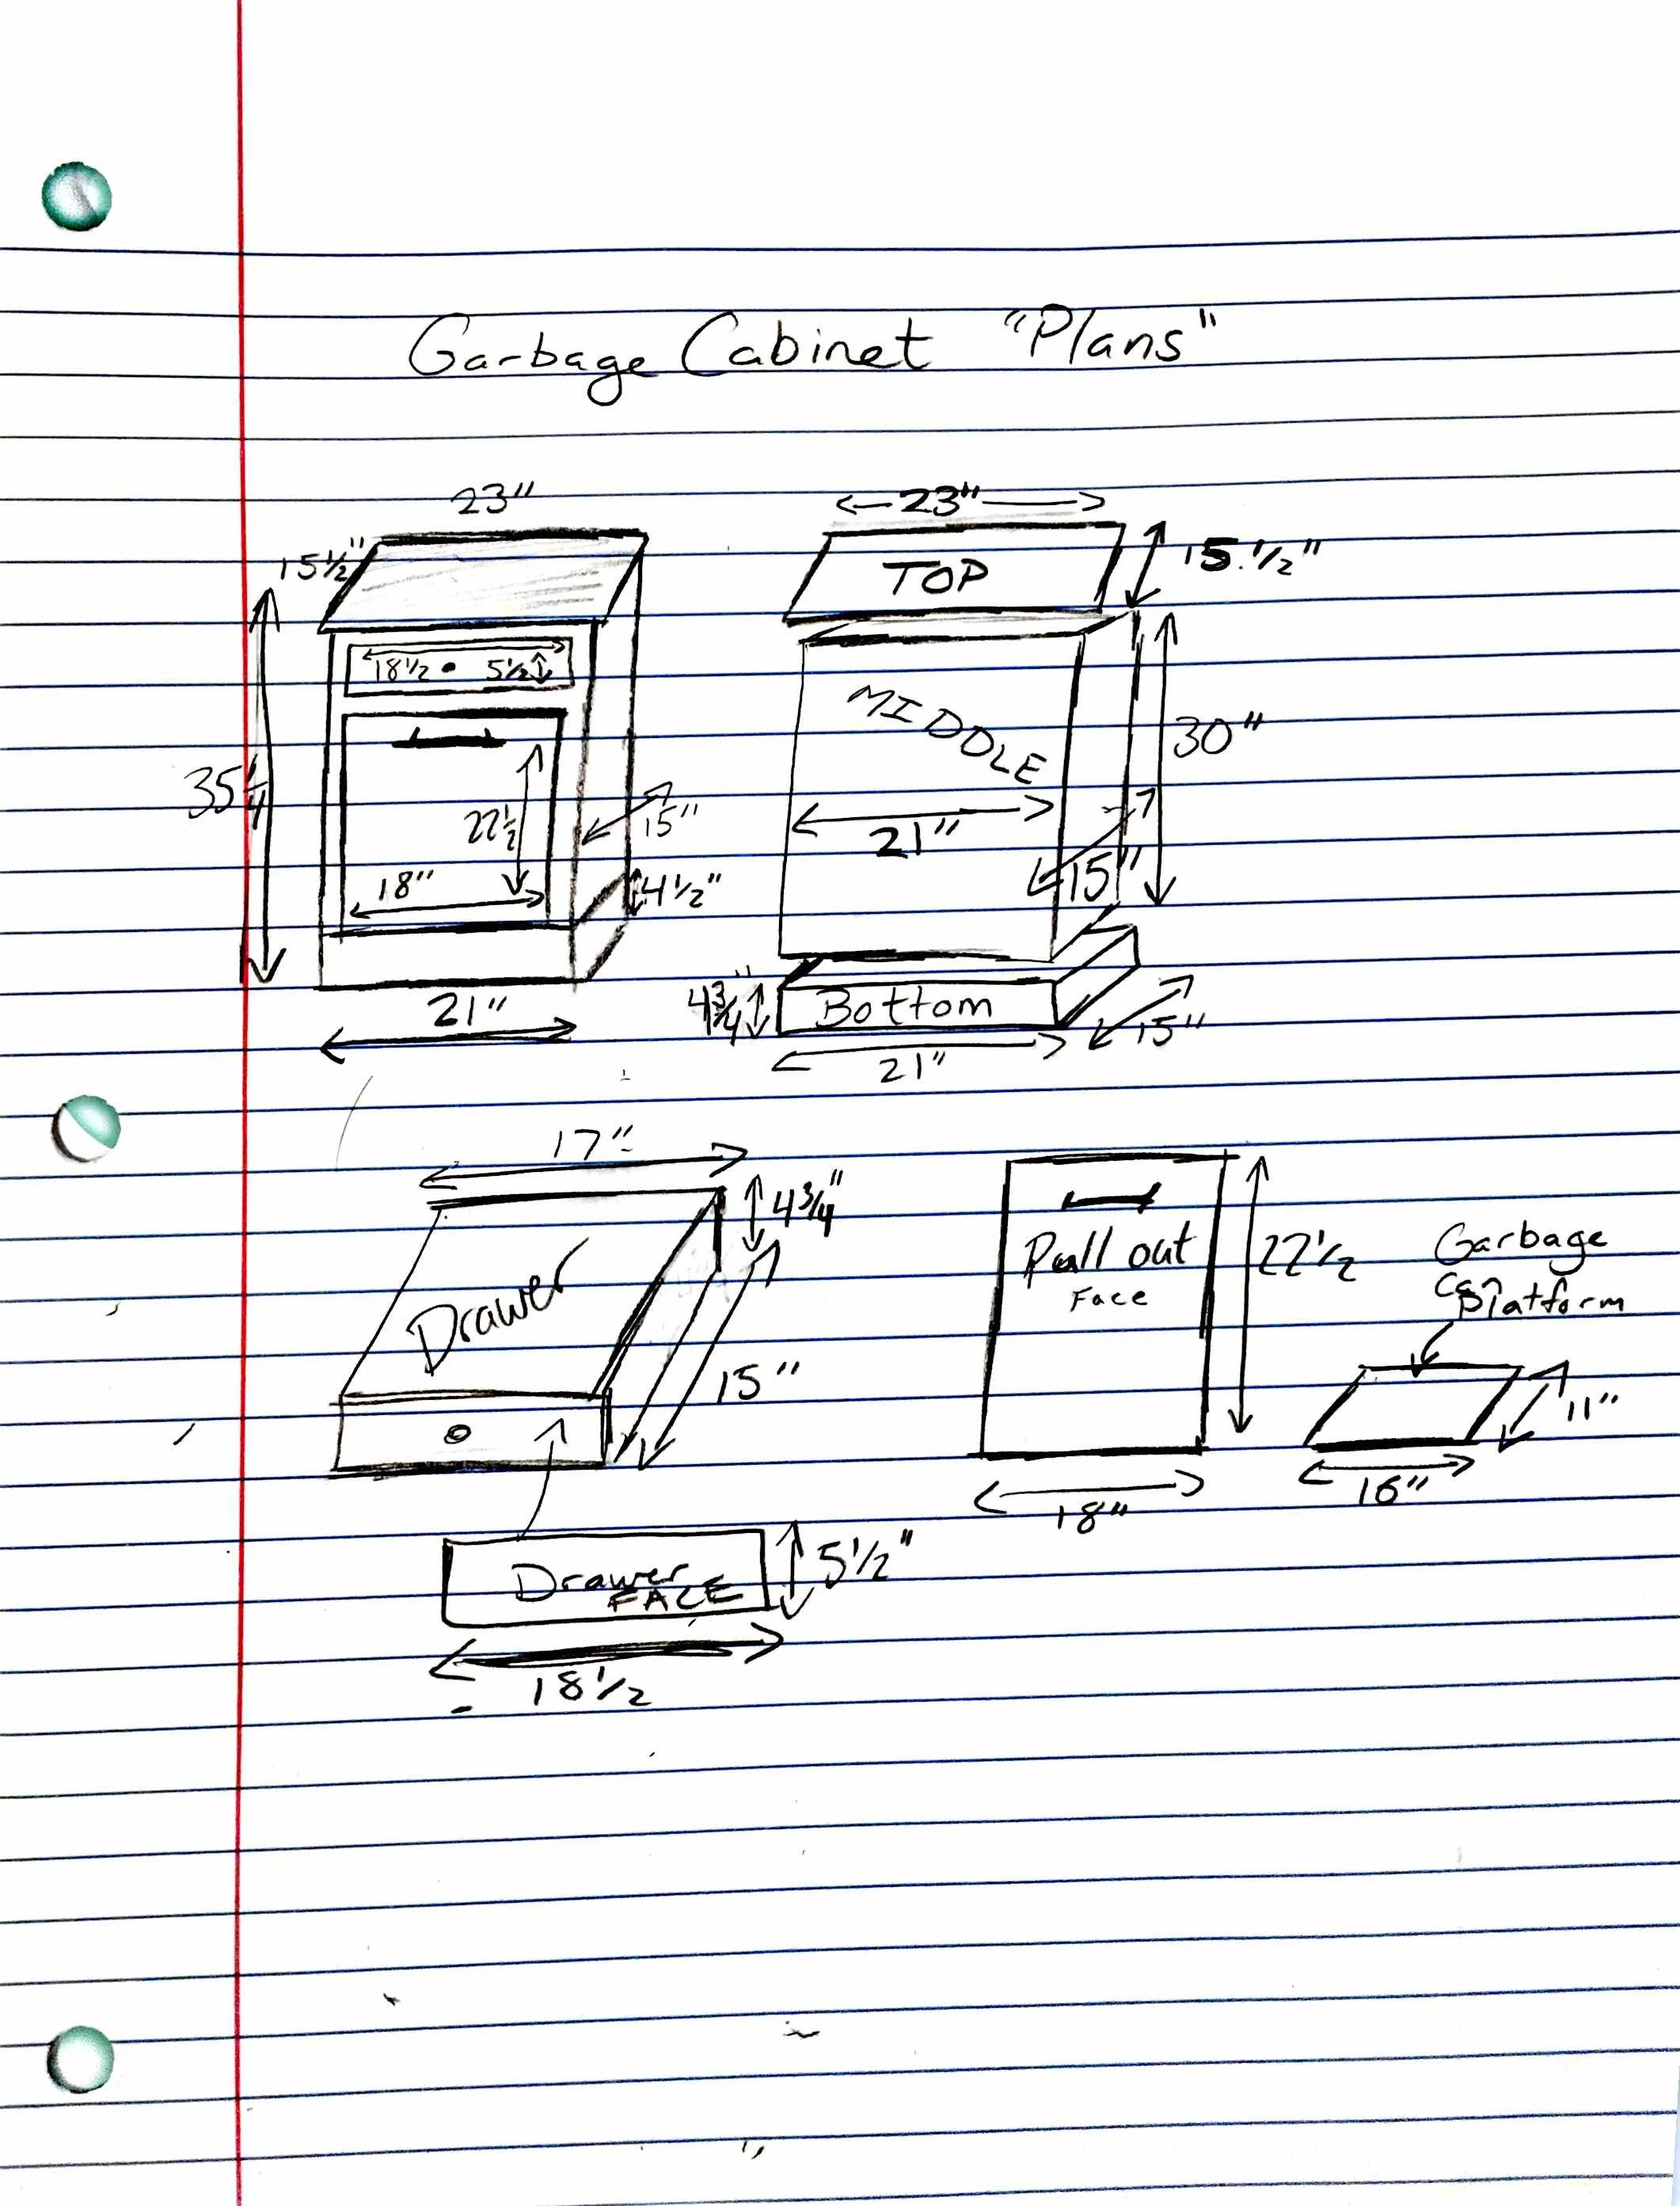 Garbage Cabinet "Plans"
23"
15½"
18½ 5½
35¼
22½
15"
18"
4½"
21"
23"
TOP
15.½"
MIDDLE
30"
21"
15"
4¾"
Bottom
15"
21"
17"
4¾"
Drawer
15"
Drawer
FACE
5½"
18½
Pull out
Face
22½
18"
Garbage
Platform
11"
16"